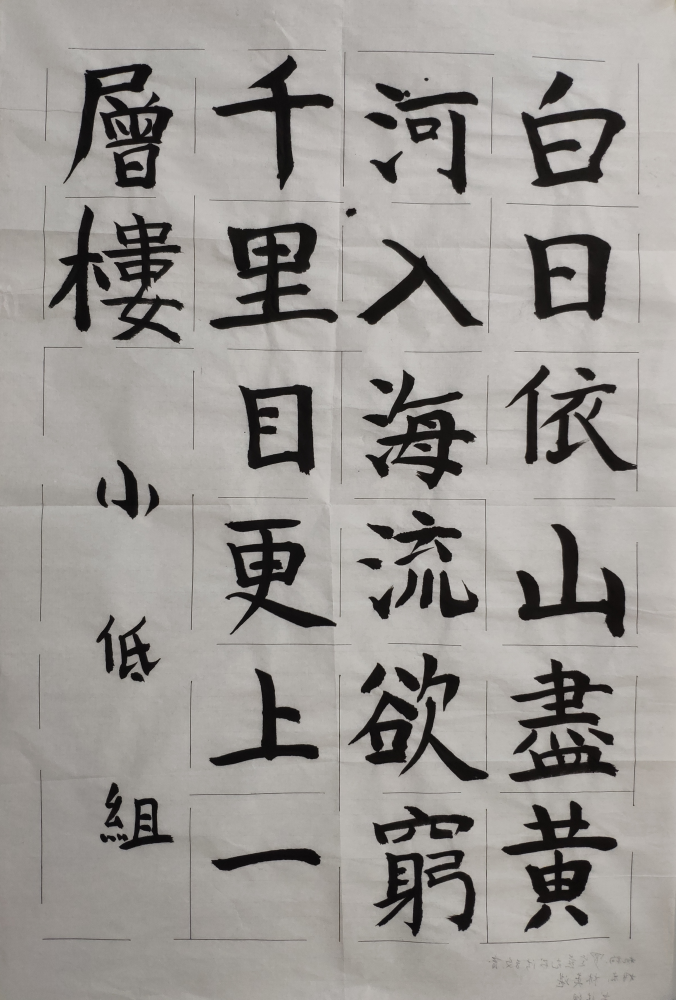 白日依山盡黄
河入海流欲窮
千里目更上一
層樓
小低組